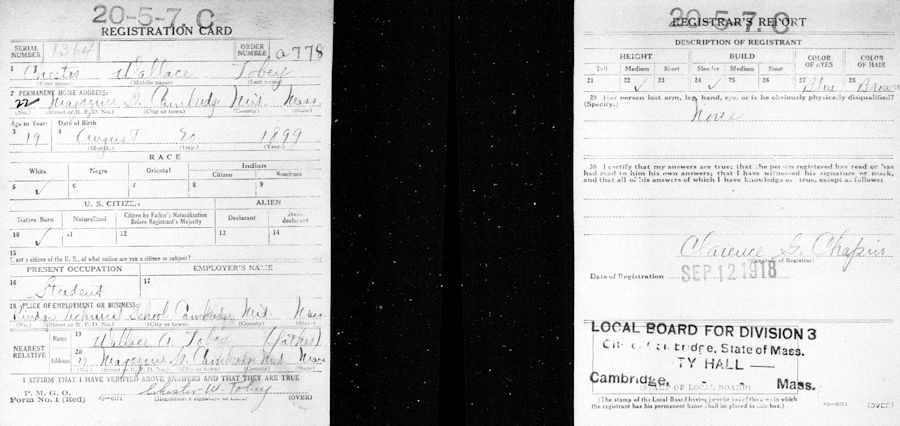 20-5-7. C
REGISTRATION CARD
SERIAL NUMBER 1364 ORDER NUMBER a778
1 Chester Wallace Tobey
(First name) (Middle name) (Last name)
2 PERMANENT HOME ADDRESS:
22 Magazine St. Cambridge Mid. Mass.
(No.) (Street or R. F. D. No.) (City or town) (County) (State)
Age in Years Date of Birth
3 19 4 August 20 1899
(Month.) (Day.) (Year.)
RACE
White Negro Oriental Indian
Citizen Noncitizen
5 ✓ 6 7 8 9
U. S. CITIZEN ALIEN
Native Born Naturalized Citizen by Father's Naturalization Before Registrant's Majority Declarant Non-declarant
10 ✓ 11 12 13 14
15
If not a citizen of the U. S., of what nation are you a citizen or subject?
PRESENT OCCUPATION EMPLOYER'S NAME
16 Student 17
18 PLACE OF EMPLOYMENT OR BUSINESS:
Technical School Cambridge Mid. Mass
(No.) (Street or R. F. D. No.) (City or town) (County) (State)
NEAREST RELATIVE Name 19 Wallace A. Tobey (father)
Address 20 22 Magazine St. Cambridge Mid Mass
(No.) (Street or R. F. D. No.) (City or town) (County) (State)
I AFFIRM THAT I HAVE VERIFIED ABOVE ANSWERS AND THAT THEY ARE TRUE
P. M. G. O.
Form No. 1 (Red) Chester W. Tobey
(Registrant's signature or mark) (OVER)
20-5-7. C
REGISTRAR'S REPORT
DESCRIPTION OF REGISTRANT
HEIGHT BUILD COLOR OF EYES COLOR OF HAIR
Tall Medium Short Slender Medium Stout
21 22 ✓ 23 24 ✓ 25 26 27 Blue 28 Brown
29 Has person lost arm, leg, hand, eye, or is he obviously physically disqualified?
(Specify.) None
30 I certify that my answers are true; that the person registered has read or has
had read to him his own answers; that I have witnessed his signature or mark,
and that all of his answers of which I have knowledge are true, except as follows:
Clarence G. Chapin
(Signature of Registrar)
Date of Registration SEP 12 1918
LOCAL BOARD FOR DIVISION 3
City of Cambridge, State of Mass.
TY HALL
Cambridge, - - Mass.
(STAMP OF LOCAL BOARD)
(The stamp of the Local Board having jurisdiction of the area in which
the registrant has his permanent home shall be placed in this box.)
(OVER)